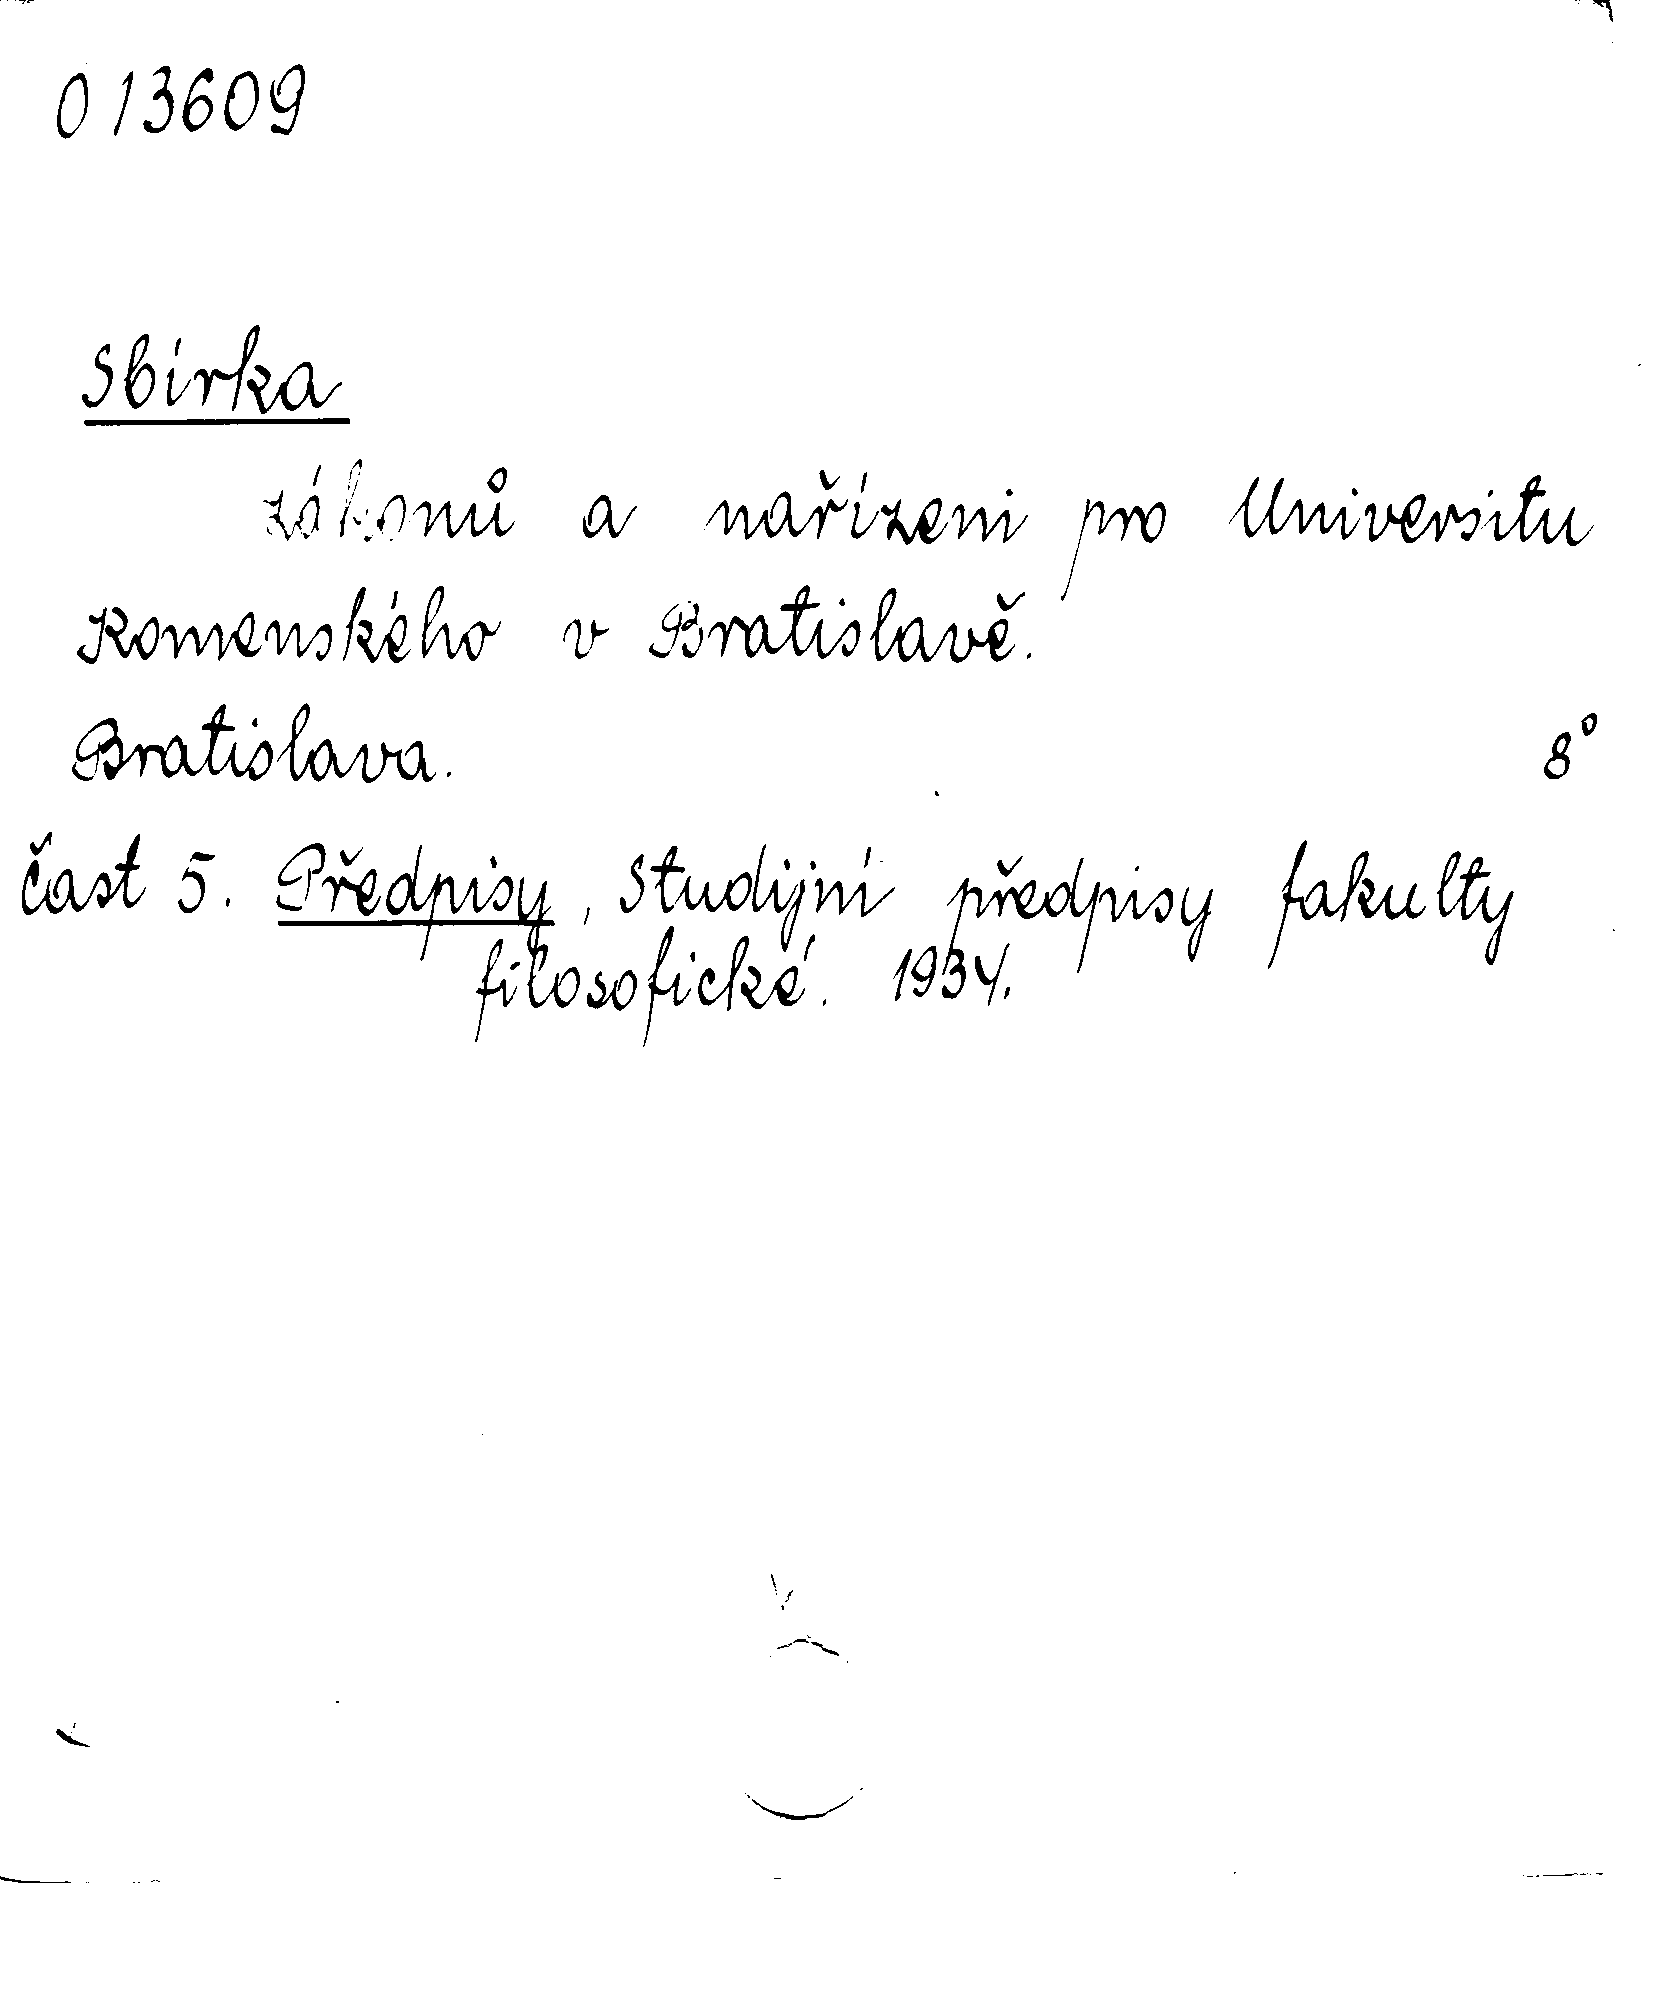 013609
Sbírka
zákonů a nařízeni pro Universitu
Komenského v Bratislavě.
Bratislava. 8°
část 5. Předpisy, Studijní předpisy fakulty
filosofické. 1934.